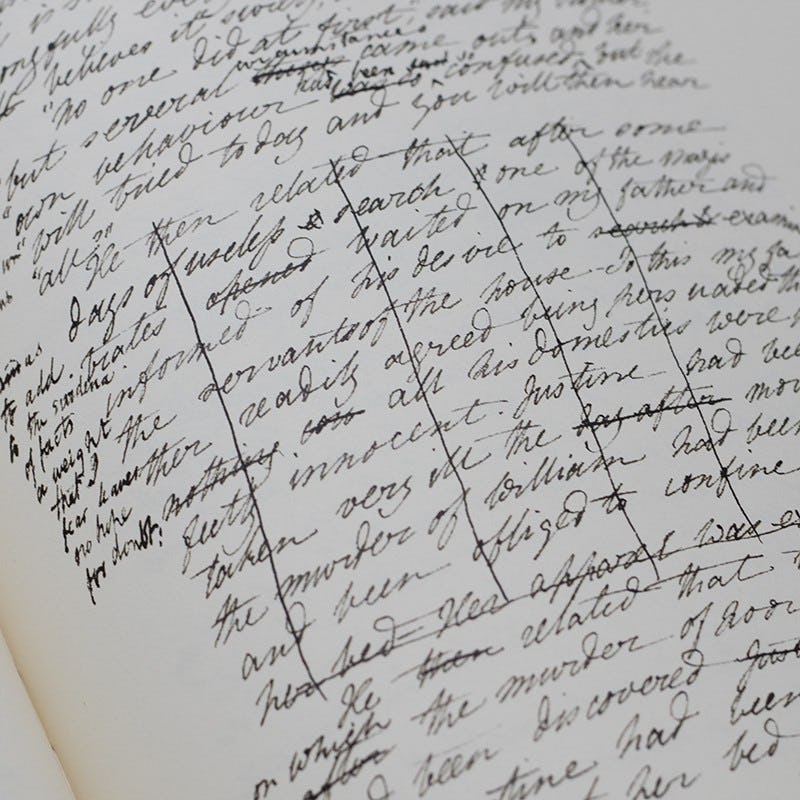 "believes it
"no one did at first," said my
circumstances
but serveral came out and her
had been
"own behaviour confused, but she
"will tried today and you will then hear
"all"
He then related that after some
days of useless & search & one of the magis
trates opened waited on my father and
informed of his desire to search & examin
the servants of the house - To this my fa
ther readily agreed being pers uaded th
nothing all his domestics were
fectly innocent. Justine had bee
taken very ill the day after mor
the murder of William had been
and been obliged to confine
her bed Her apparel was ex
He then related that
on which the murder of poor
after had been discovered Just
tine had been
her bed
to add
to the
of facts
a weight
that I
fear leaves
no hope
for doubt: